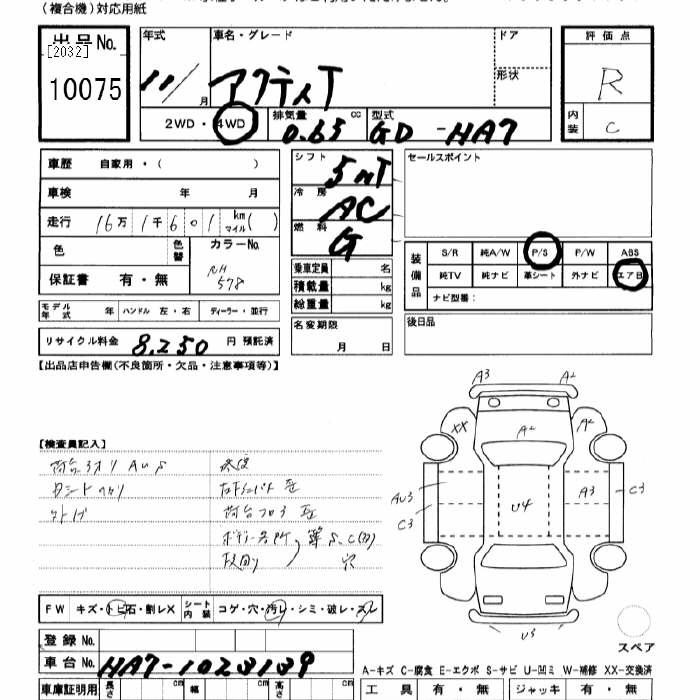 (複合機)対応用紙
出品No.
[2032]
10075
年式
11/
月
車名・グレード
アクティT
ドア
形状
2WD・4WD
排気量
cc
0.65
型式
GD-HA7
評価点
R
内装
C
車歴 自家用・( )
車検 年 月
走行 16万 1千 6 0 1 km マイル( )
色
色替
カラーNo.
NH
578
保証書 有・無
シフト
5MT
冷房
AC
燃料
G
乗車定員 名
積載量 kg
総重量 kg
セールスポイント
装備品
S/R 純A/W P/S P/W ABS
純TV 純ナビ 革シート 外ナビ エアB
ナビ型番:
モデル年式 年 ハンドル 左・右 ディーラー・並行
名変期限
月 日
後日品
リサイクル料金 8,250 円 預託済
【出品店申告欄(不良箇所・欠品・注意事項等)】
A3 A2
XX A2 A2
【検査員記入】
AU3 A3 C3
C3 U4
U3
FW キズ・トビ石・割レX シート内装 コゲ・穴・汚レ・シミ・破レ・スレ
スペア
登録No.
車台No. HA7-1023139
A-キズ C-腐食 E-エクボ S-サビ U-凹ミ W-補修 XX-交換済
車庫証明用 長さ cm 幅 cm 高さ cm
工具 有・無 ジャッキ 有・無